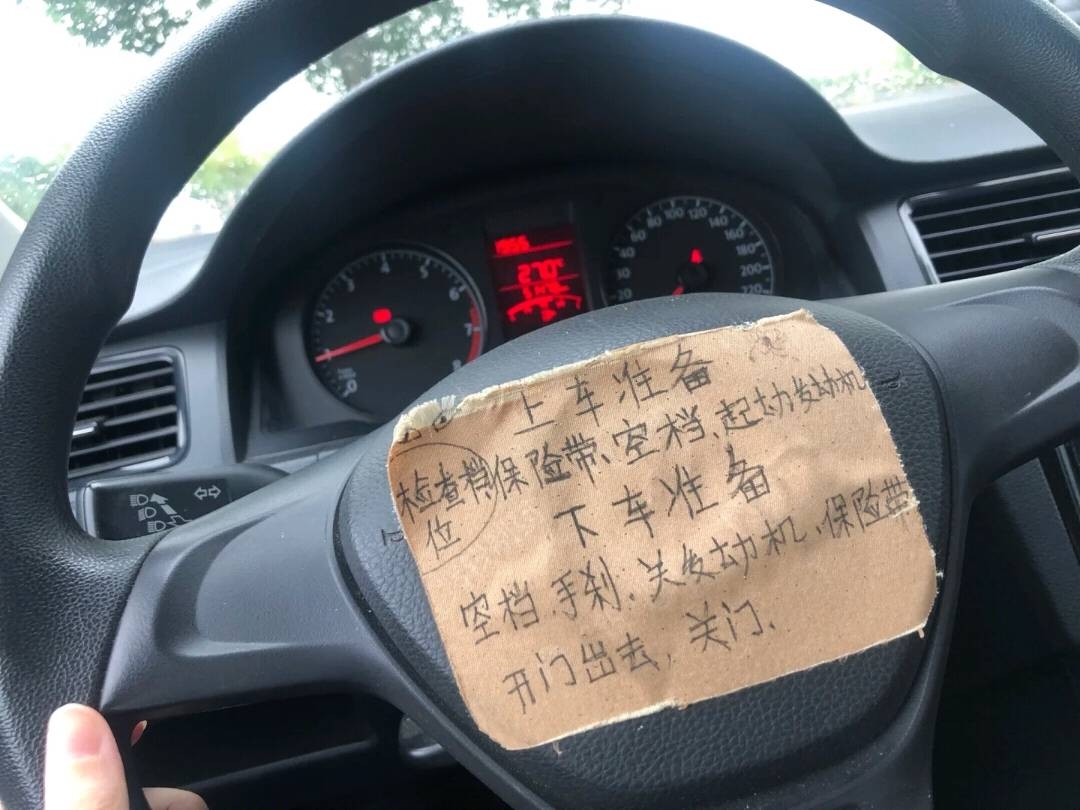 上车准备
检查档位
保险带、空档、起动发动机
下车准备
空档、手刹、关发动机、保险带
开门出去，关门.
2
4
5
6
7
8
20
60
80
100
120
140
160
180
200
220